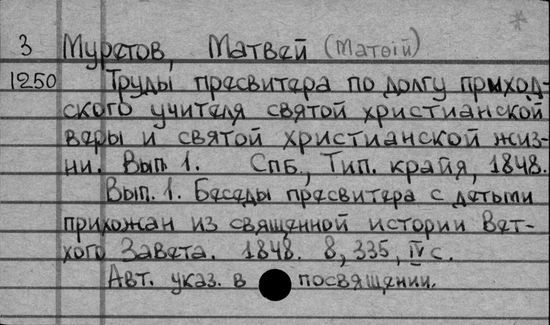 3 Муретов, Матвей (Матѳій)
1250 Труды пресвитера по долгу приход-
ского учителя святой христианской
веры и святой христианской жиз-
ни. Вып. 1. Спб., Тип. крайя, 1848.
Вып. 1. Беседы пресвитера с детьми
прихожан из священной истории Вет-
хого Завета. 1848. 8, 335, IV с.
Авт. указ. в посвящении.